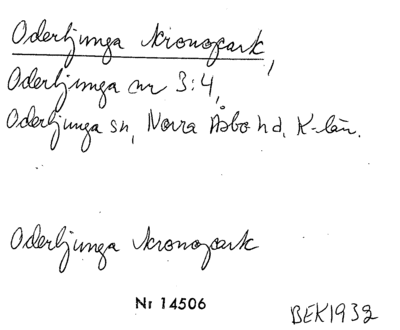 Oderljunga kronopark,
Oderljunga nr 3:4,
Oderljunga sn, Norra Åsbo hd, K-län.
Oderljunga kronopark
Nr 14506
BEK1932